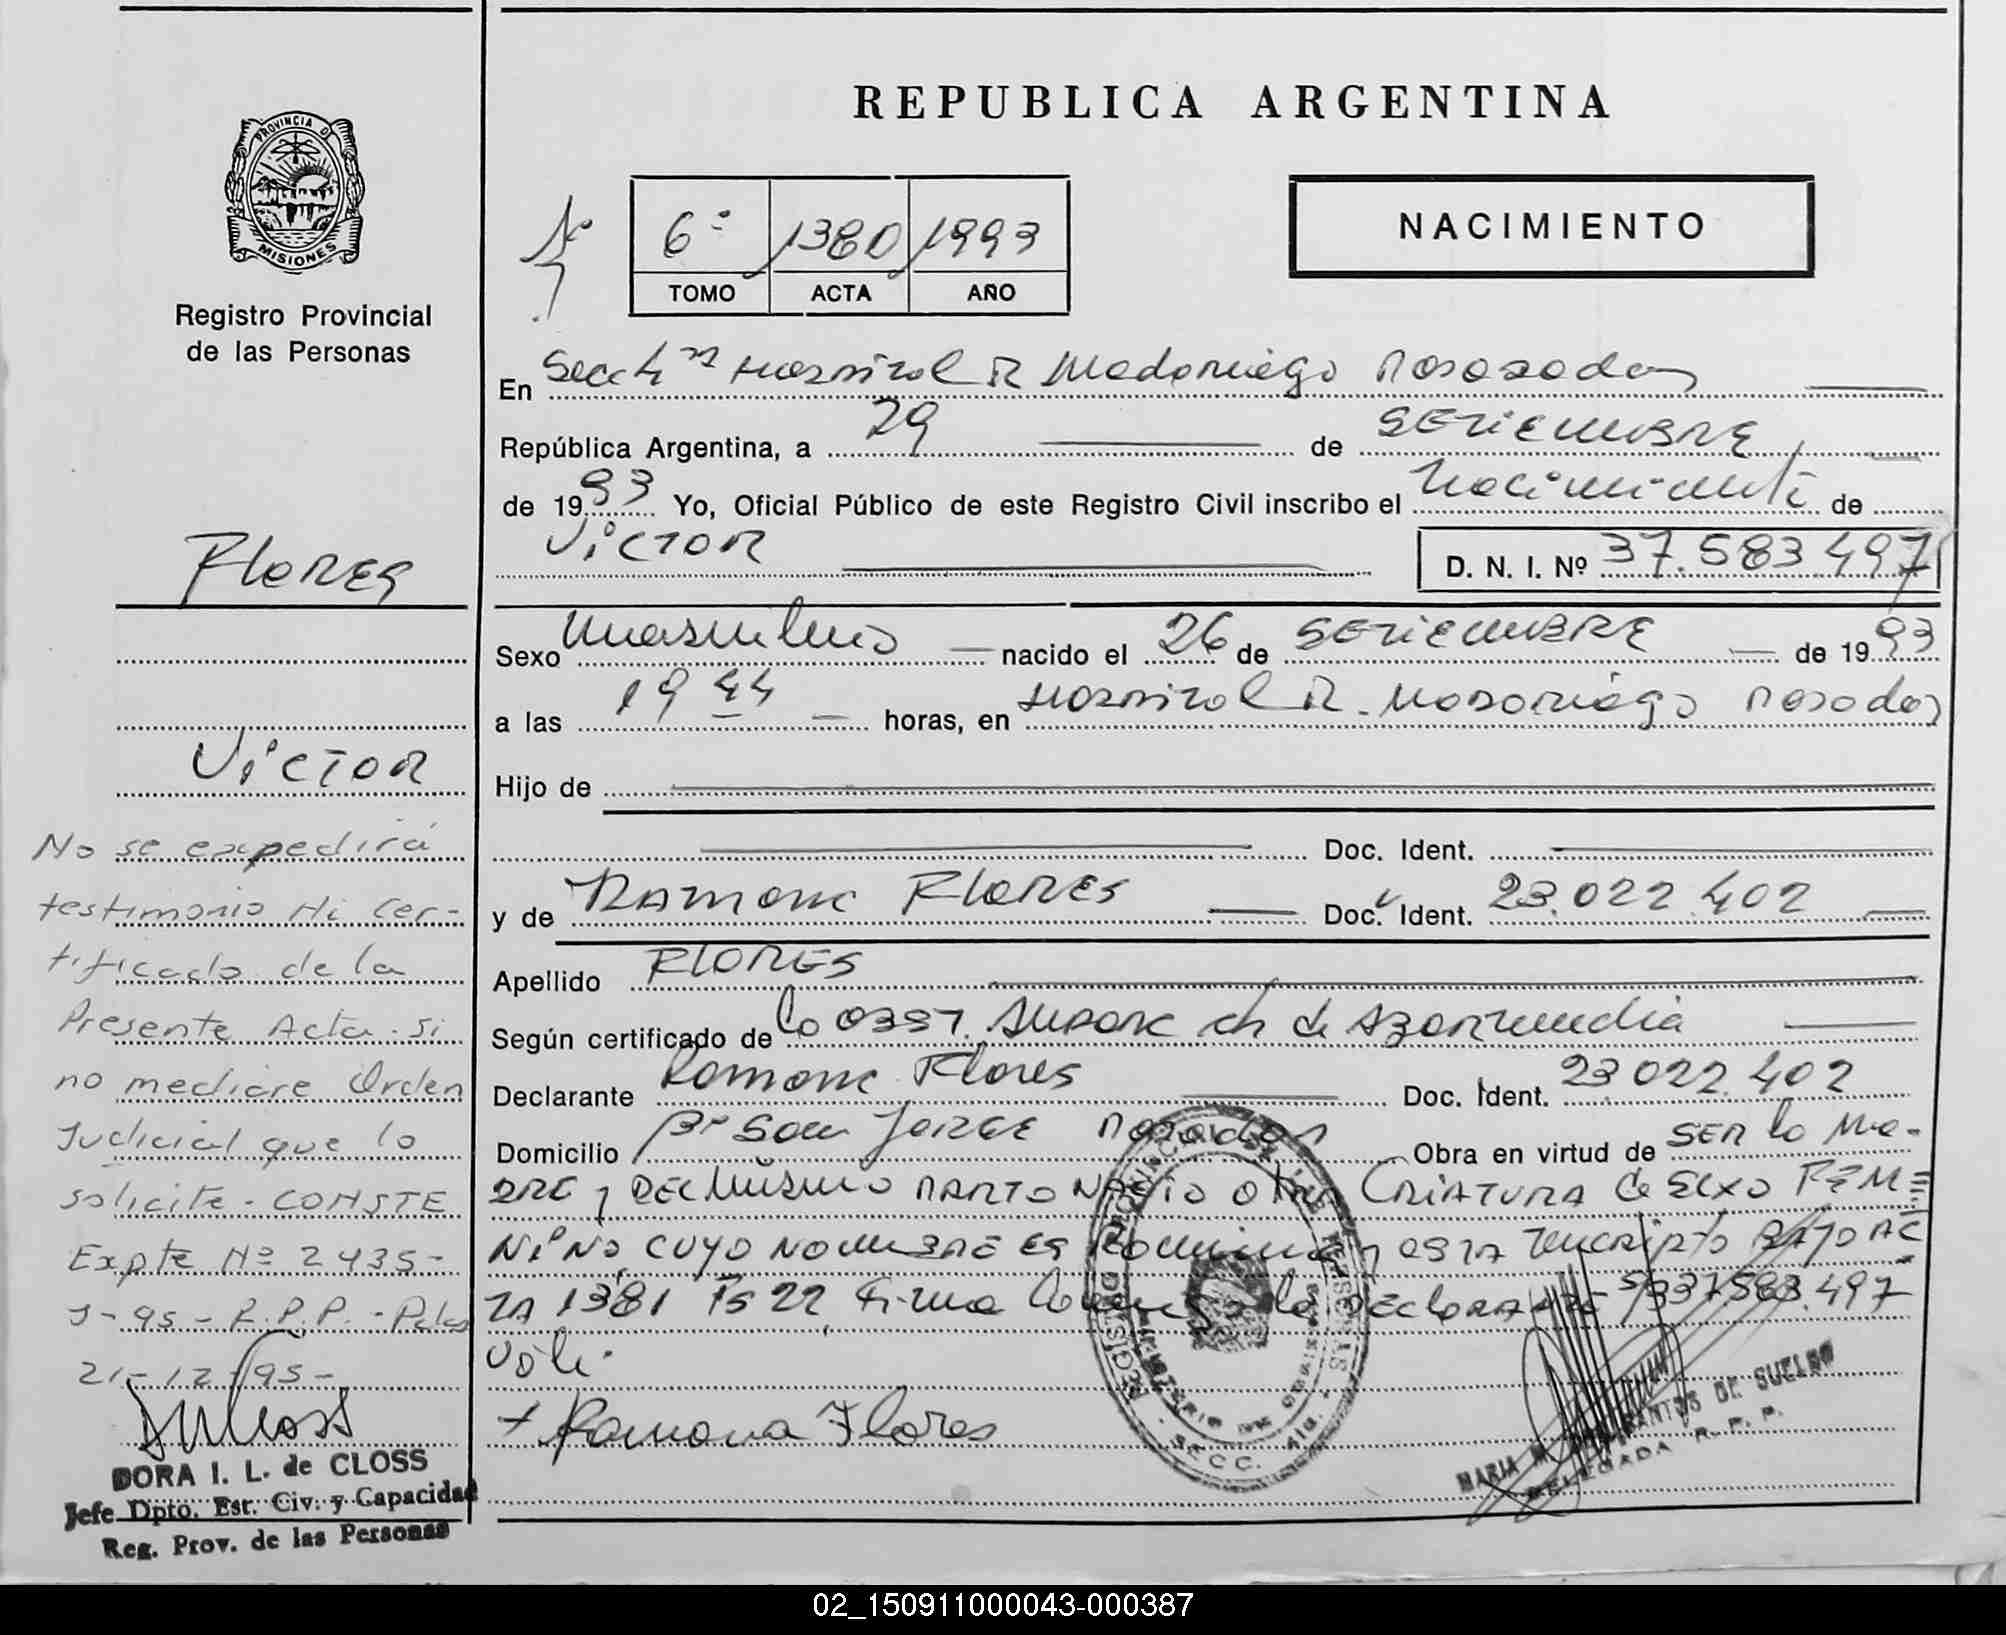 REPUBLICA ARGENTINA
PROVINCIA D
MISIONES
Registro Provincial
de las Personas
6º 1380 1993
TOMO ACTA AÑO
NACIMIENTO
En Secc 4ta Hospital R Madariaga Posadas
República Argentina, a 29 de SETIEMBRE
de 1993 Yo, Oficial Público de este Registro Civil inscribo el nacimiento de
VICTOR
D. N. I. Nº 37.583.497
Sexo masculino nacido el 26 de SETIEMBRE de 1993
a las 19 44 horas, en Hospital R. Madariaga Posadas
Hijo de
Doc. Ident.
y de RAMONA FLORES Doc. Ident. 23.022.402
Apellido FLORES
Según certificado de la obst. Susana de
Declarante Ramona Flores Doc. Ident. 23.022.402
Domicilio Bº San JORGE Posadas Obra en virtud de SER la MA-
DRE y DEL MISMO PARTO NACIO OTRA CRIATURA de SEXO FEME
NINO, CUYO NOMBRE ES Romina y ESTA inscripto BAJO AC
TA 1381 Fs 22, Firma la DECLARANTE S/ 37.583.497
vale.
+ Ramona Flores
FLORES
VICTOR
No se expedirá
testimonio Ni Cer-
tificado de la
Presente Acta si
no mediare Orden
Judicial que lo
solicite - CONSTE
Expte Nº 2435-
J-95- R.P.P. - Pdas
21-12-95-
DORA I. L. de CLOSS
Jefe Dpto. Est. Civ. y Capacidad
Reg. Prov. de las Personas
SECC. 4ta.
MARIA M. SANTOS DE SUELDO
DELEGADA R. P. P.
02_150911000043-000387